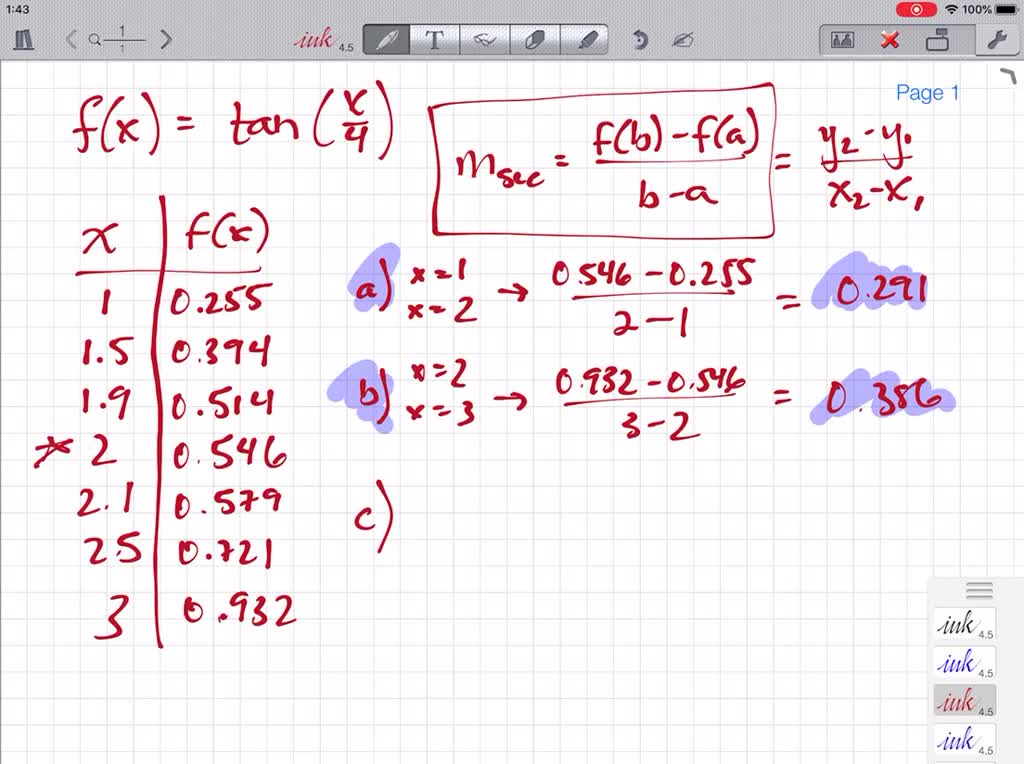 1:43
100%
1/1
ink 4.5
T
Page 1
f(x) = tan(x/4)
m sec = f(b) - f(a) / b - a = y₂ - y₁ / x₂ - x₁
x f(x)
1 0.255
1.5 0.394
1.9 0.514
* 2 0.546
2.1 0.579
2.5 0.721
3 0.932
a) x = 1
x = 2 → 0.546 - 0.255 / 2 - 1 = 0.291
b) x = 2
x = 3 → 0.932 - 0.546 / 3 - 2 = 0.386
c)
ink 4.5
ink 4.5
ink 4.5
ink 4.5